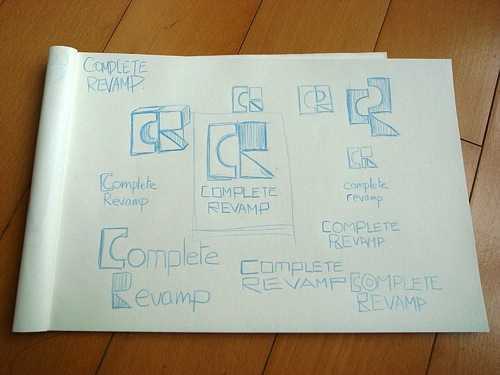 COMPLETE
REVAMP:
CR
CR
CR
CR
CR
COMPLETE
REVAMP
CR
Complete
Revamp
complete
revamp
COMPLETE
REVAMP
Complete
Revamp
COMPLETE
REVAMP
COMPLETE
REVAMP